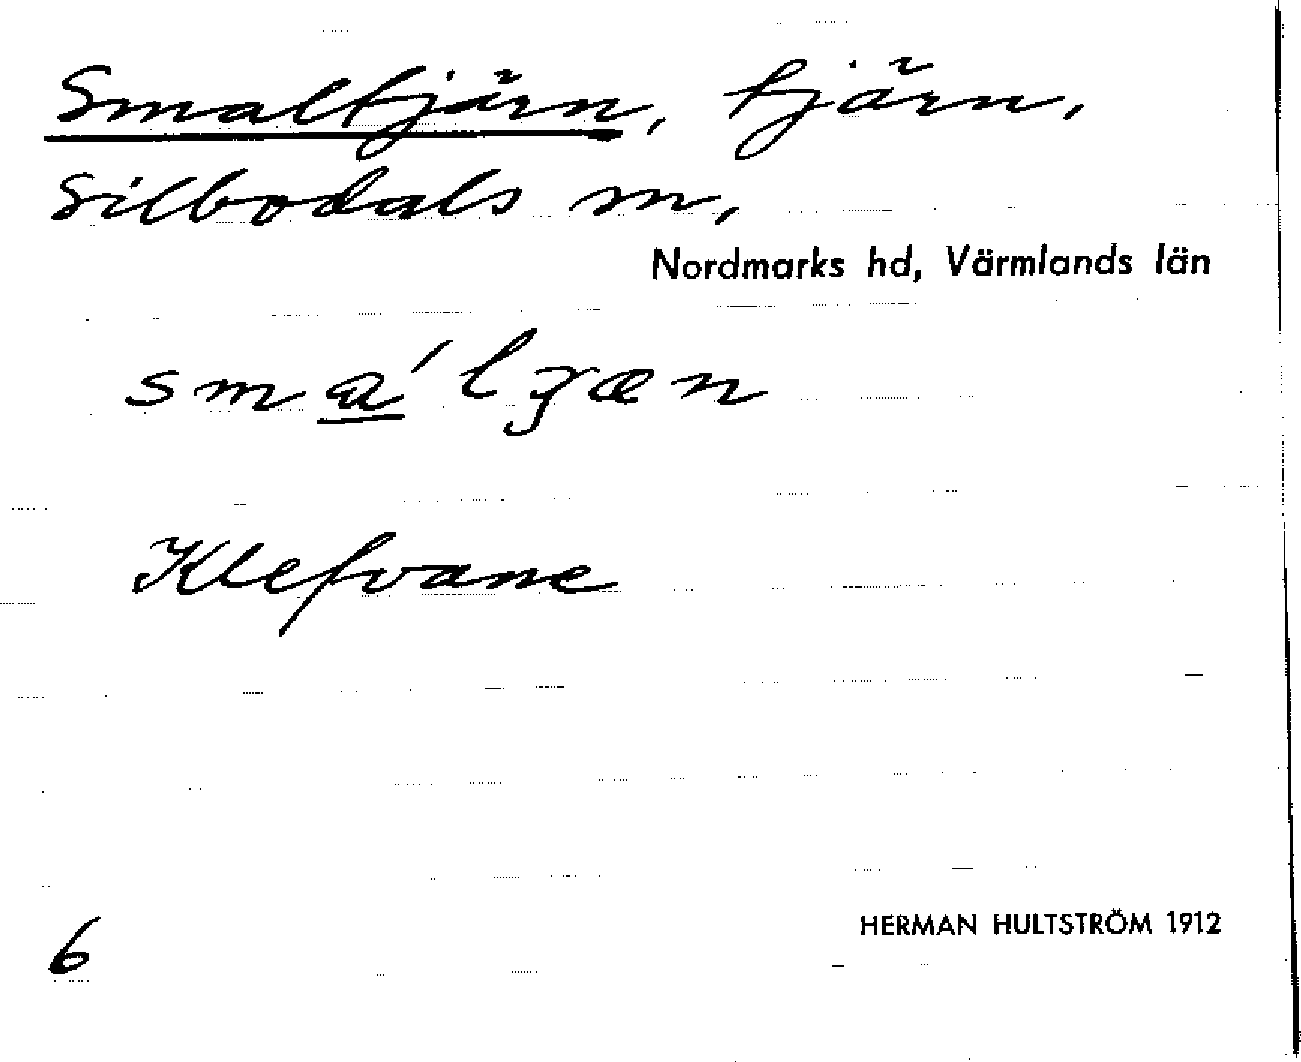 Smaltjärn, tjärn,
Silbodals sn,
Nordmarks hd, Värmlands län
smálʒæn
Klefvane
6
HERMAN HULTSTRÖM 1912